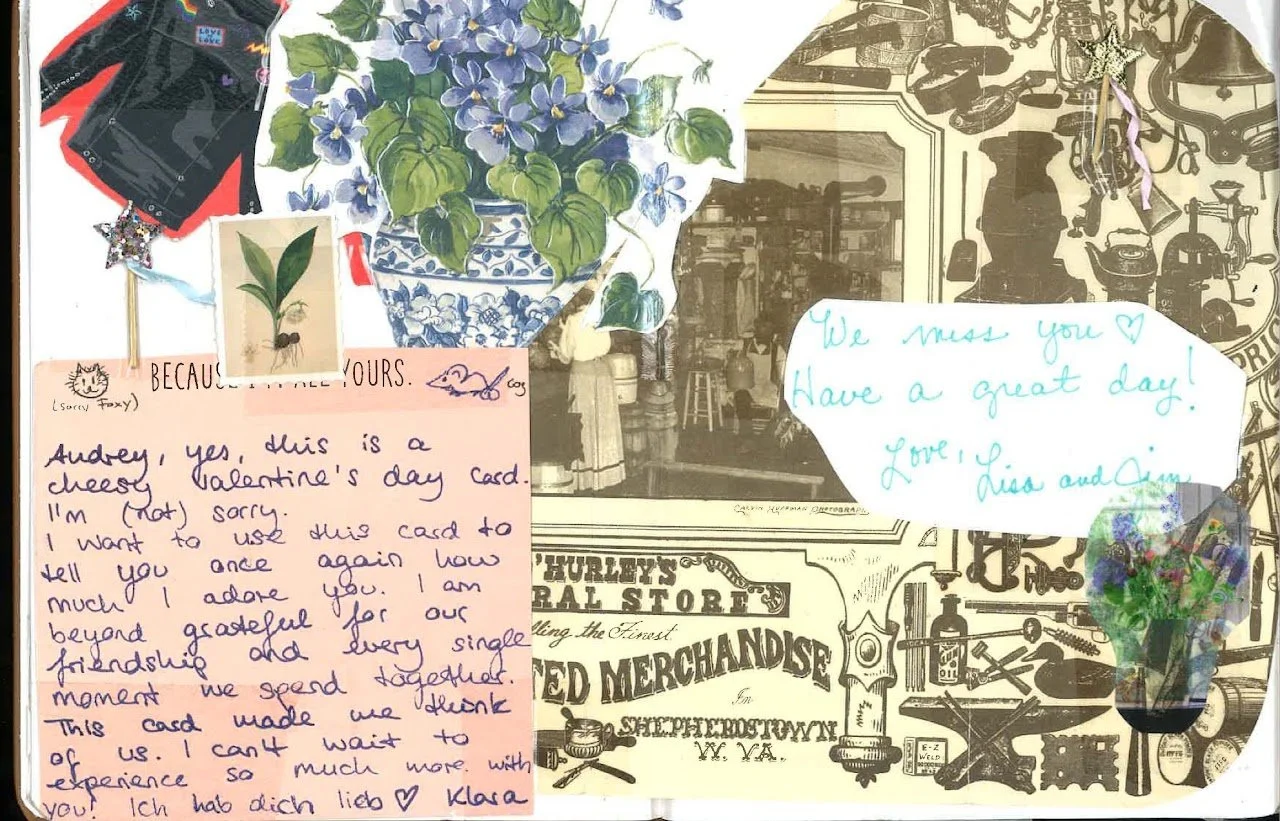 LOVE IS LOVE
BECAUSE I'M ALL YOURS.
(sorry Foxy)
Audrey, yes, this is a
cheesy valentine's day card.
I'm (not) sorry.
I want to use this card to
tell you once again how
much I adore you. I am
beyond grateful for our
friendship and every single
moment we spend together.
This card made me think
of us. I can't wait to
experience so much more with
you! Ich hab dich lieb ♡ Klara
We miss you ♡
Have a great day!
Love,
Lisa and Jim
CALVIN HUFFMAN PHOTOGRAPH
'HURLEY'S
RAL STORE
lling the Finest
TED MERCHANDISE
In
SHEPHERDSTOWN
W. VA.
OIL
E-Z
WELD
PRIC